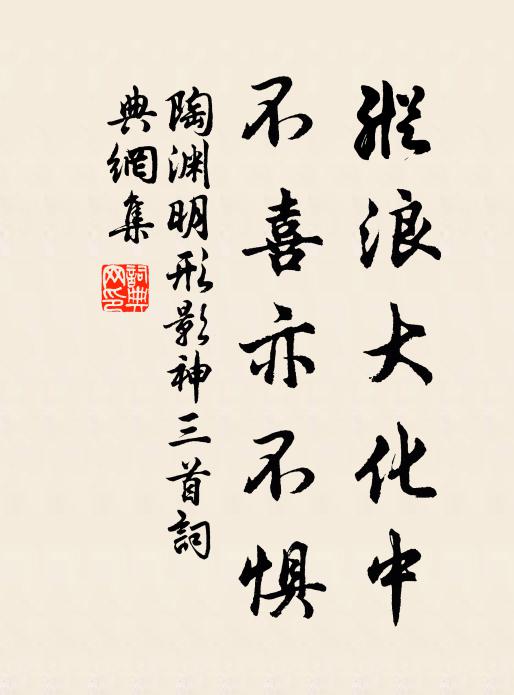 縱浪大化中
不喜亦不懼
陶渊明形影神三首詞
典網集
詞典
网印